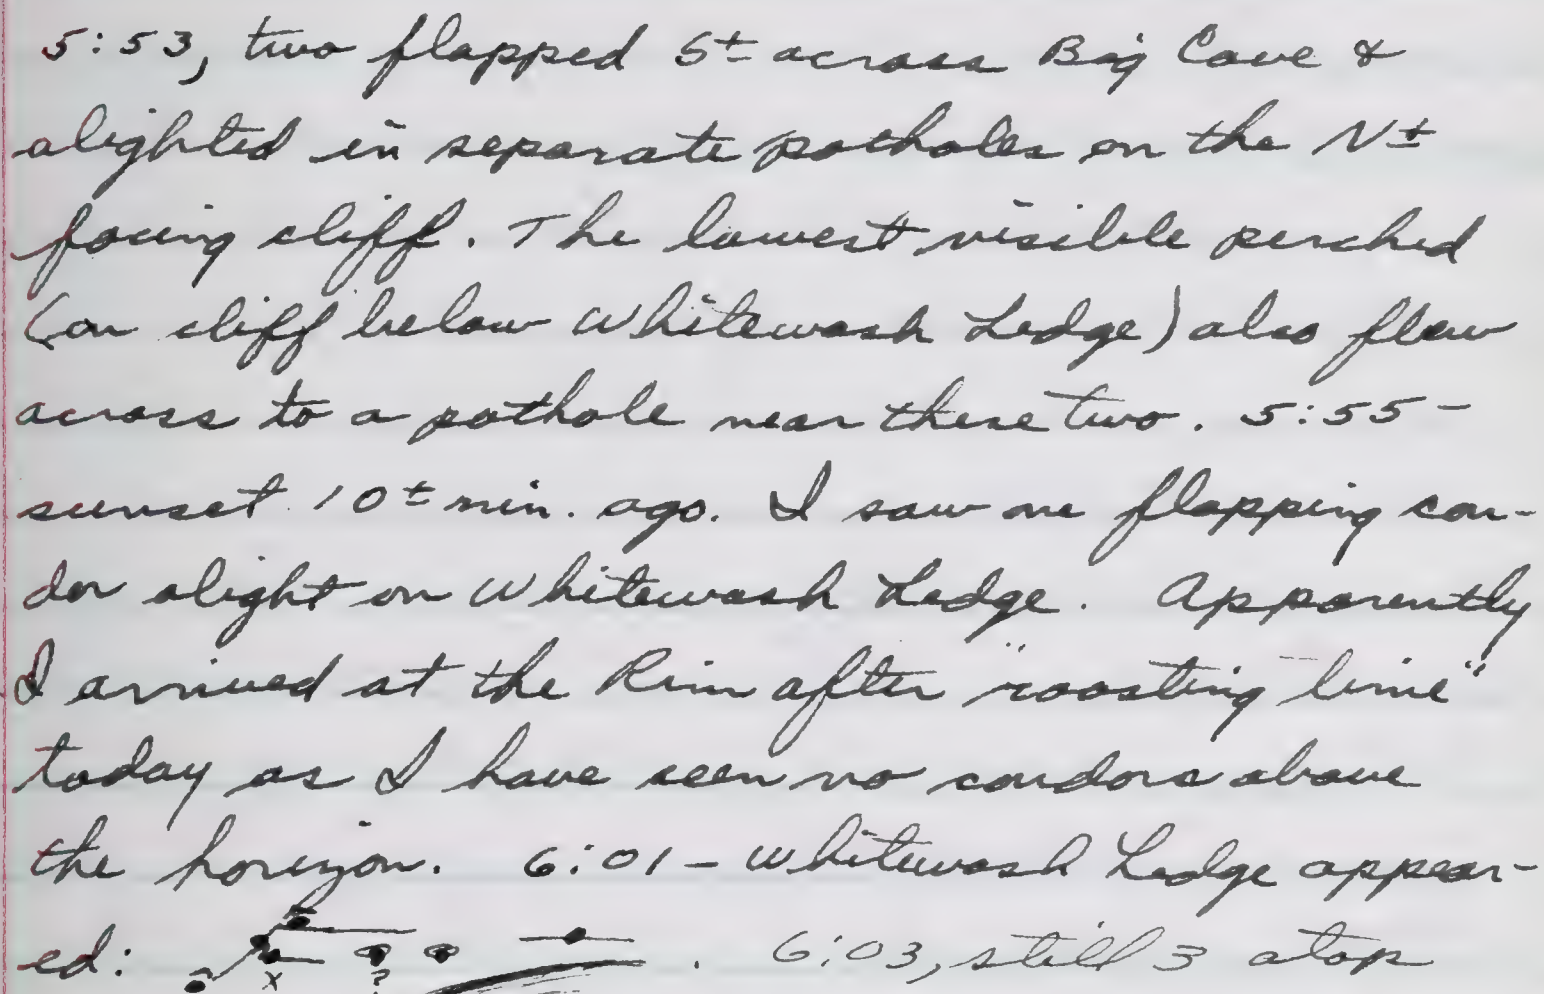 5:53, two flapped S± across Big Cave &
alighted in separate potholes on the N±
facing cliff. The lowest visible perched
(on cliff below Whitewash Ledge) also flew
across to a pothole near these two. 5:55-
sunset 10± min. ago. I saw one flapping con-
dor alight on Whitewash Ledge. Apparently
I arrived at the Rim after "roosting time"
today as I have seen no condors above
the horizon. 6:01- Whitewash Ledge appear-
ed: x ? . 6:03, still 3 atop